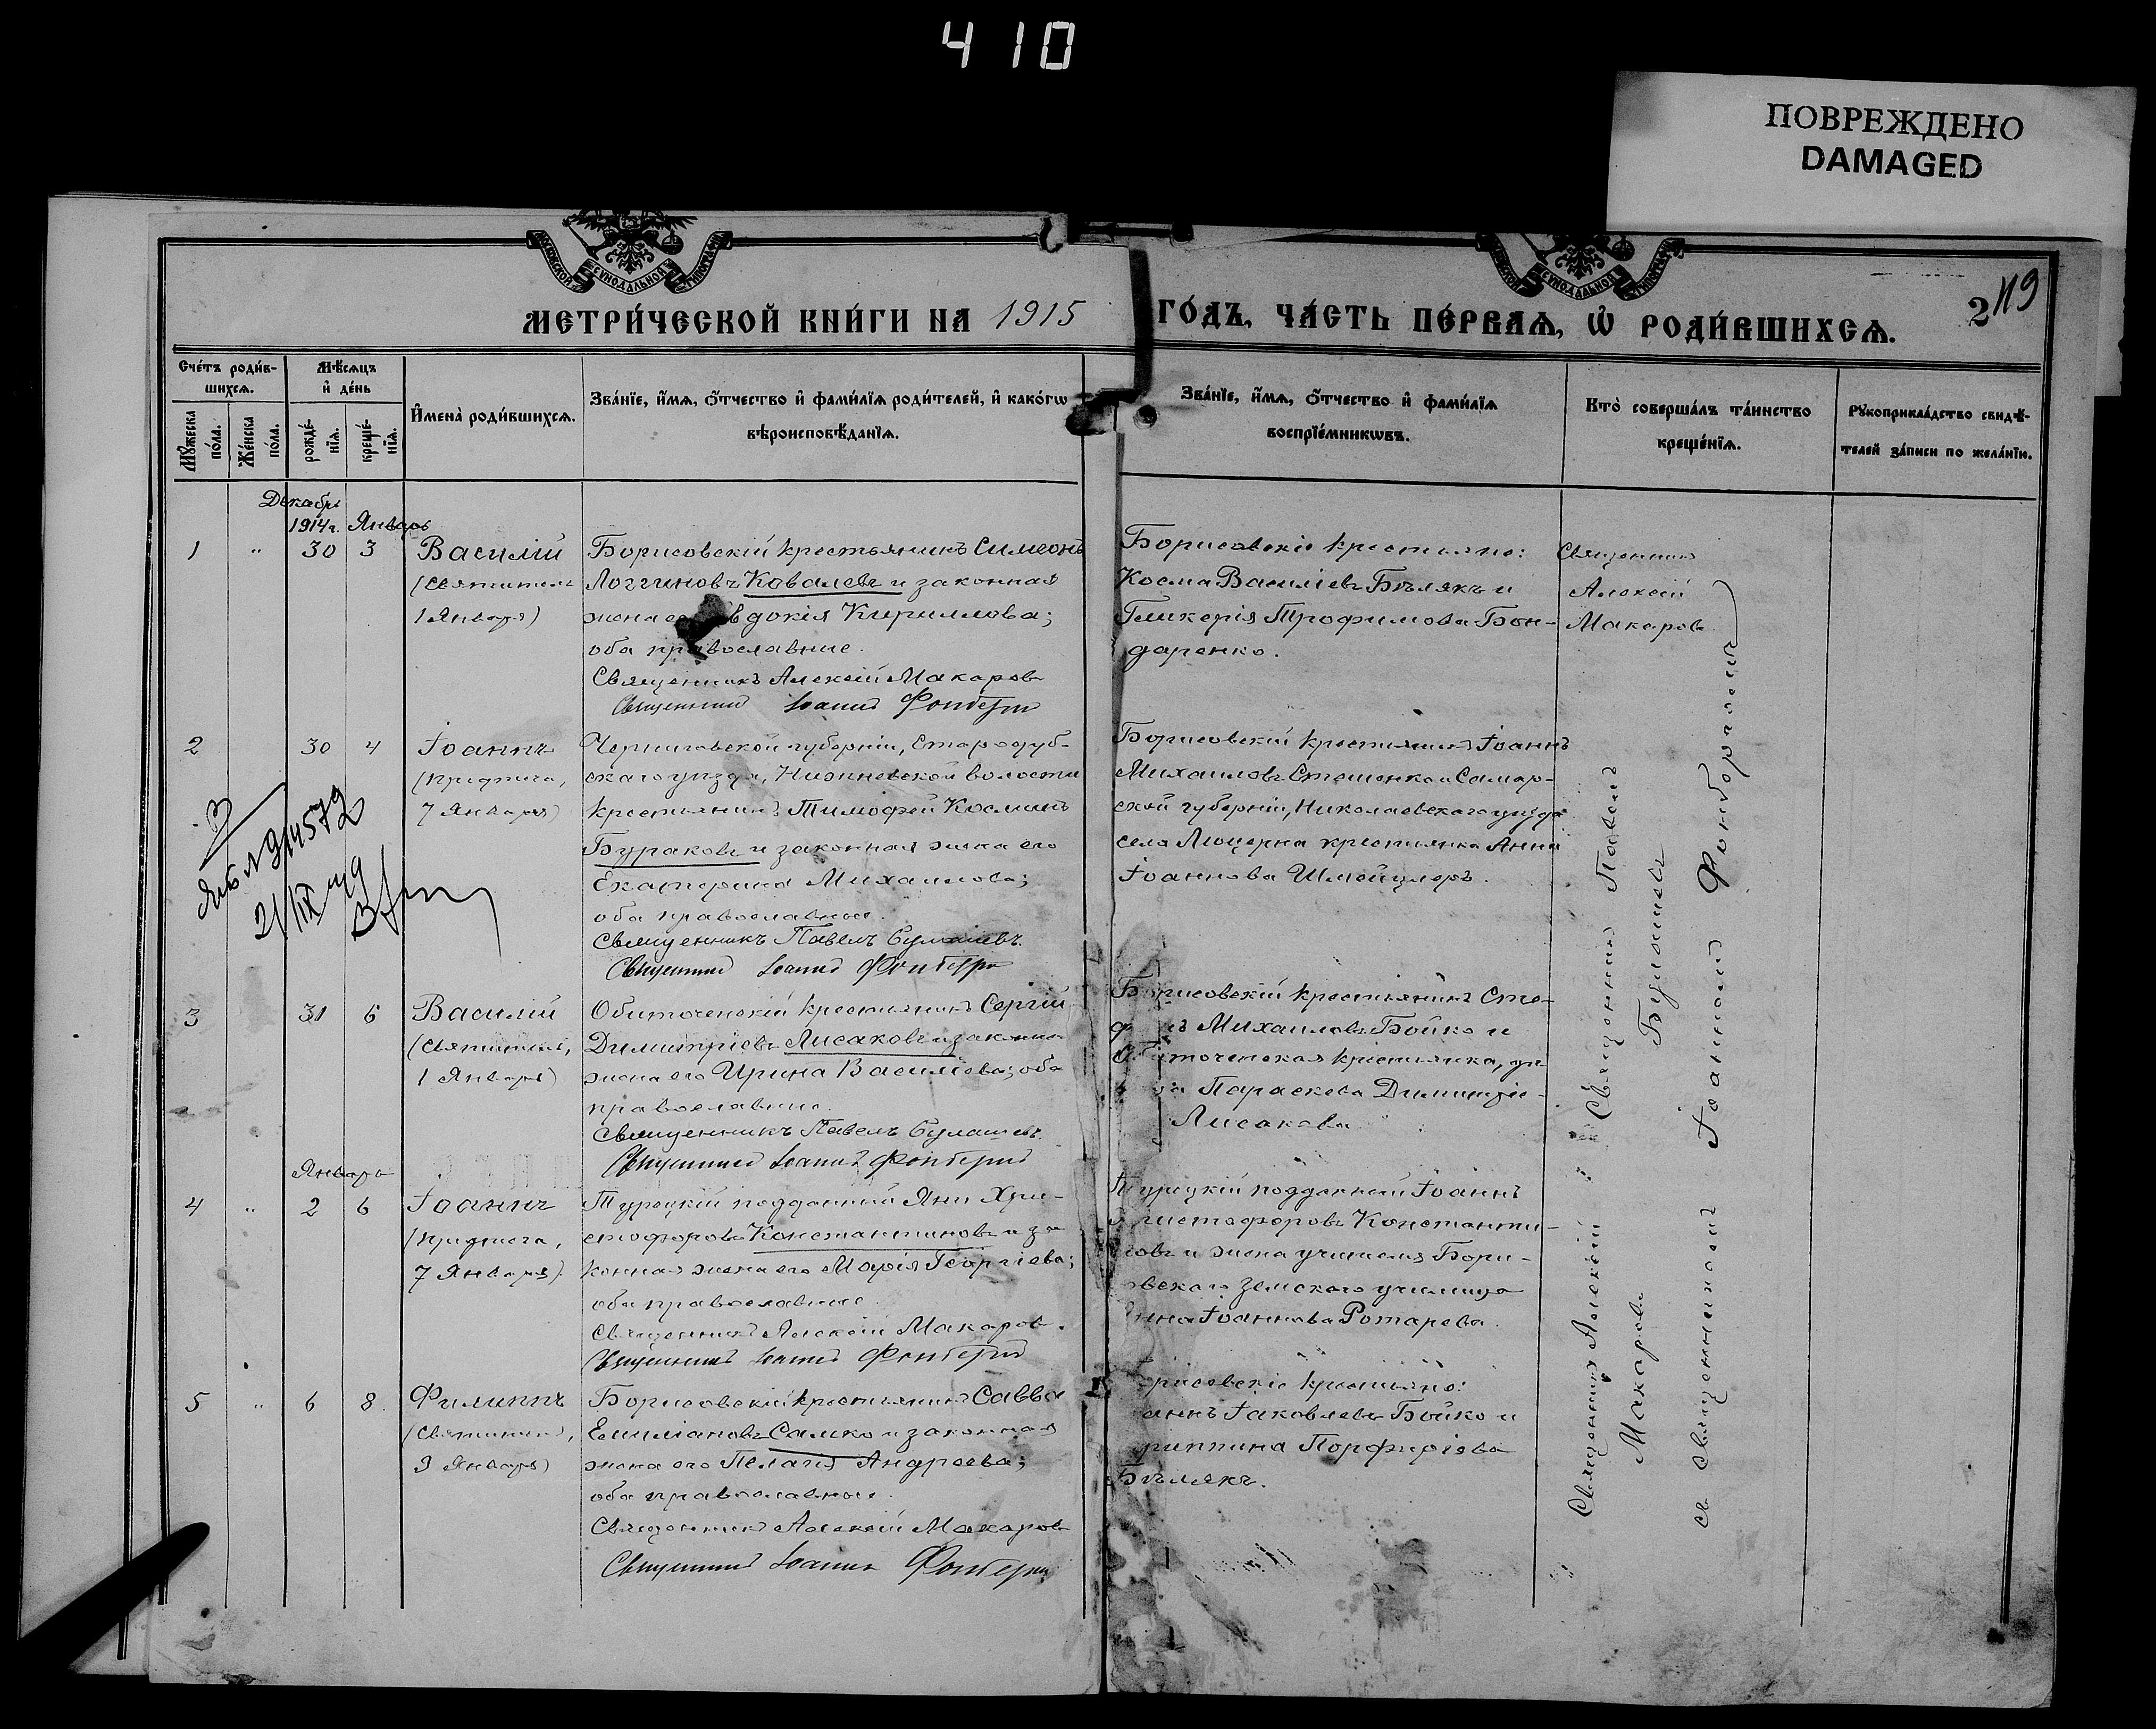 4 10
ПОВРЕЖДЕНО
DAMAGED
МОСКОВСКОЙ СУНОДАЛЬНОЙ ТИПОГРАФІИ
МОСКОВСКОЙ СУНОДАЛЬНОЙ ТИПОГРАФІИ
МЕТРИ́ЧЕСКОЙ КНИ́ГИ НА 1915 ГО́ДЪ, ЧА́СТЬ ПЕ́РВАѦ, Ѡ҆ РОДИ́ВШИХСѦ.
2 119
Сче́тъ роди́в-
шихсѧ.
Мꙋ́жеска по́ла.
Же́нска по́ла.
Мѣ́сѧцъ
и҆ де́нь
рожде́-
нїѧ.
креще́-
нїѧ.
И҆мена̀ роди́вшихсѧ.
Зва́нїе, и҆́мѧ, ѻ҆́тчество и҆ фами́лїѧ роди́телей, и҆ како́гѡ
вѣроисповѣ́данїѧ.
Зва́нїе, и҆́мѧ, ѻ҆́тчество и҆ фами́лїѧ
воспрїе́мникѡвъ.
Кто̀ соверша́лъ та́инство
креще́нїѧ.
Рꙋкоприкла́дство свидѣ́-
телей за́писи по жела́нїю.
Декабрь
1914 г. Январь
1 " 30 3
Василій
(Святитель
1 Января)
Борисовскій крестьянинъ Симеонъ
Логгиновъ Ковалевъ и законная
жена его вдокія Кириллова;
оба православные.
Священникъ Алексій Макаровъ
Священникъ Іоаннъ
Борисовскіе крестьяне:
Косма Василіевъ Бѣлякъ и
Гликерія Трофимова Бон-
даренко.
Священникъ
Алексій
Макаровъ
2 30 4
Іоаннъ
(Предтеча,
7 Января)
Черниговской губерніи, Стародуб-
скаго уѣзда, волости
крестьянинъ Тимофей Косминъ
Бураковъ и законная жена его
Екатерина Михаилова;
оба православные.
Священникъ Павелъ Булашевъ.
Священникъ Іоаннъ
Борисовскій крестьянинъ Іоаннъ
Михаиловъ Стешенко и Самар-
ской губерніи, Николаевскаго уѣзда
села Люцерна крестьянка Анна
Іоаннова
21/IX
3 31 6
Василій
(Святитель,
1 Января)
Обиточенскій крестьянинъ Сергій
Димитріевъ Лисаковъ и законная
жена его Ирина Василіева; оба
православные.
Священникъ Павелъ Булашевъ.
Священникъ Іоаннъ
Борисовскій крестьянинъ Сте-
ф ъ Михаиловъ Бойко и
Обиточенская крестьянка, дѣ-
Параскева Димитріе-
Лисакова
Январь
4 " 2 6
Іоаннъ
(Предтеча,
7 Января).
Турецкій подданный Яни Хри-
стофоровъ Константиновъ и за-
конная жена его Марія Георгіева;
оба православные.
Священникъ Алексій Макаровъ.
Священникъ Іоаннъ
Турецкій подданный Іоаннъ
Христофоровъ Константи-
новъ и жена учителя Бори-
овскаго земскаго училища
Іоаннова Ротарева.
5 " 6 8.
Филиппъ
(Святитель,
9 Января)
Борисовскій крестьянинъ Савва
Емиліановъ Самко и законная
жена его Пелагія Андреева;
оба православные.
Священникъ Алексій Макаровъ
Священникъ Іоаннъ
рисовскіе крестьяне:
аннъ Іаковлевъ Бойко и
риппина Порфиріева
Бѣлякъ.
" Священникъ Павелъ
Булашевъ
" Священникъ Алексій
Макаровъ
съ Священникомъ Іоанномъ